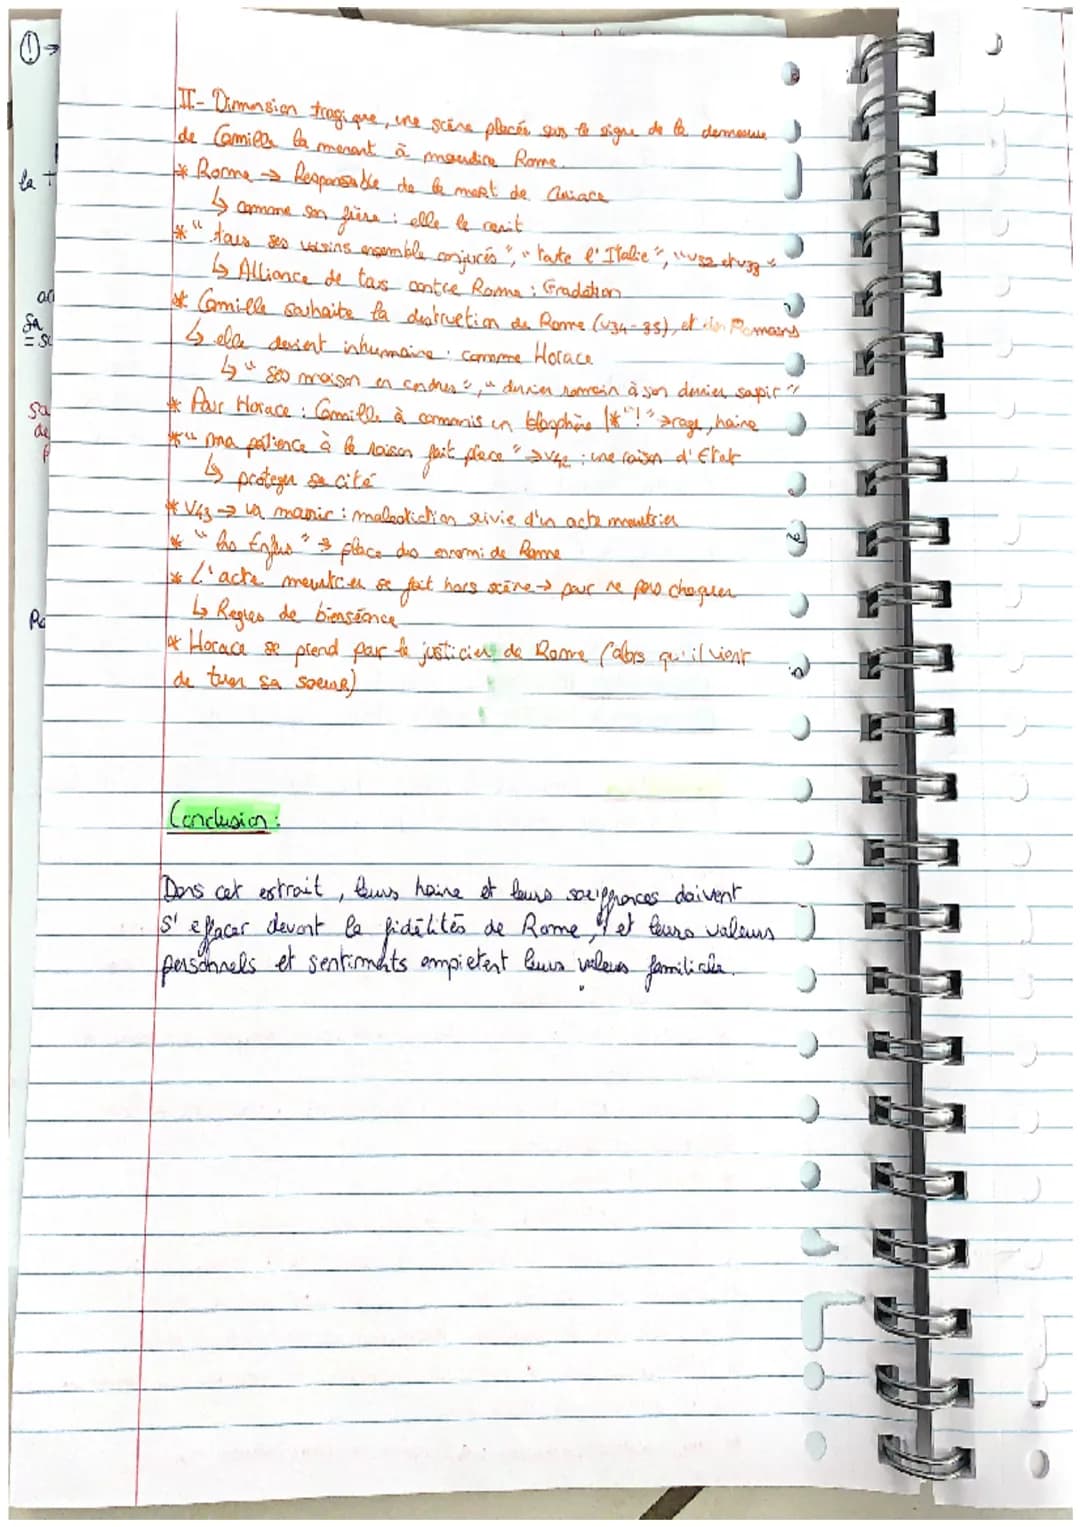 II- Dimension tragique, une scène placée sous le signe de la demeusure
de Camille la menant à maudire Rome.
* Rome → Responsable de la mort de Curiace
↳ comme son frère : elle le renit
* "tous ses voisins ensemble conjurés", "toute l'Italie", "v32 et v33"
↳ Alliance de tous contre Rome : Gradation
* Camille souhaite la destruction de Rome (v34-35), et des Romains
↳ elle devient inhumaine : comme Horace
↳ "ses maison en cendres", "dernier romain à son dernier soupir"
* Pour Horace : Camille à commis un blasphème /*"!" → rage, haine
* "ma patience à la raison fait place" → v42 : une raison d'Etat
↳ proteger sa cité
* V43 → va mourir : malediction suivie d'un acte meurtrier
* "les Enfers" → place des ennemi de Rome
* L'acte meurtrier se fait hors scène → pour ne pas choquer
↳ Regles de bienséance
* Horace se prend par le justicier de Rome (alors qu'il vient
de tuer sa soeur)
Conclusion :
Dans cet extrait, leurs haine et leurs souffrances doivent
s'effacer devant la fidélités de Rome, et leurs valeurs
personnels et sentiments empietent leurs valeurs familiales.
①→
la
sa
= so